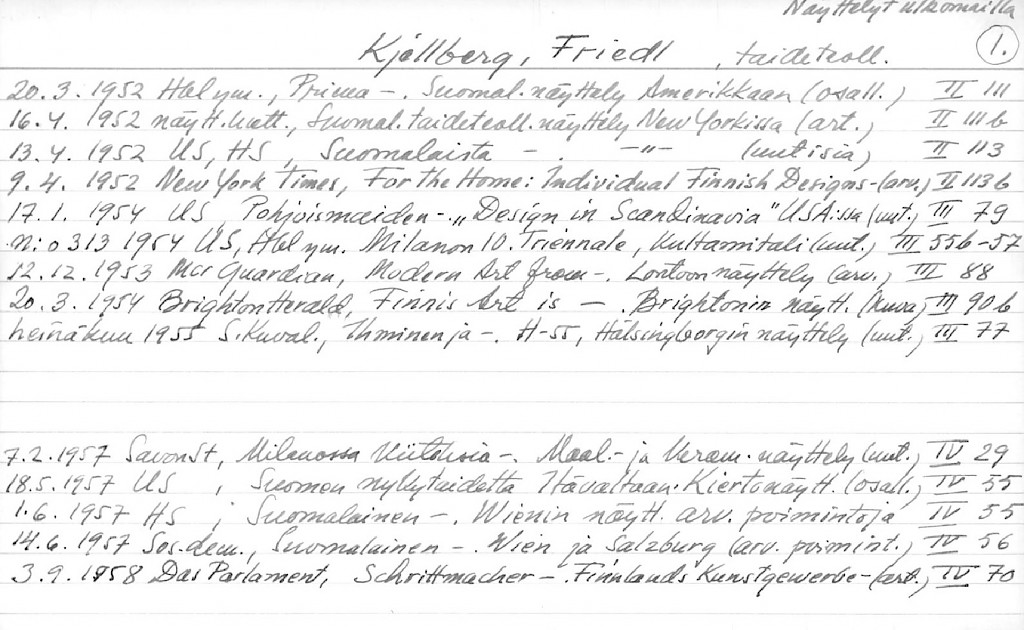 Näyttelyt ulkomailla
1.
Kjellberg, Friedl, taideteoll.
20.3.1952 Hbl ym., Prima -. Suomal. näyttely Amerikkaan (osall.) II 111
16.4.1952 näytt.luett., Suomal. taideteoll. näyttely New Yorkissa (art.) II 111b
13.4.1952 US, HS, Suomalaista - . -"- (uutisia) II 113
9.4.1952 New York Times, For the Home: Individual Finnish Designs - (arv.) II 113b
17.1.1954 US, Pohjoismaiden -. "Design in Scandinavia" USA:ssa (uut.) III 79
N:o 313 1954 US, Hbl ym. Milanon 10. Triennale, kultamitali (uut.) III 55b-57
12.12.1953 Mcr Guardian, Modern Art from -. Lontoon näyttely (arv.) III 88
20.3.1954 Brighton Herald, Finnis Art is - . Brightonin näytt. (kuva) III 90b
heinäkuu 1955 S.Kuval., Ihminen ja -. H-55, Hälsingborgin näyttely (uut.) III 77
7.2.1957 SavonSt, Milanossa -. Maal.- ja keram. näyttely (uut.) IV 29
18.5.1957 US, Suomen nykytaidetta Itävaltaan. Kiertonäytt. (osall.) IV 55
1.6.1957 HS, Suomalainen -. Wienin näytt. arv. poimintoja IV 55
14.6.1957 Sos.dem., Suomalainen -. Wien ja Salzburg (arv. poimint.) IV 56
3.9.1958 Das Parlament, Schrittmacher -. Finnlands Kunstgewerbe - (art.) IV 70